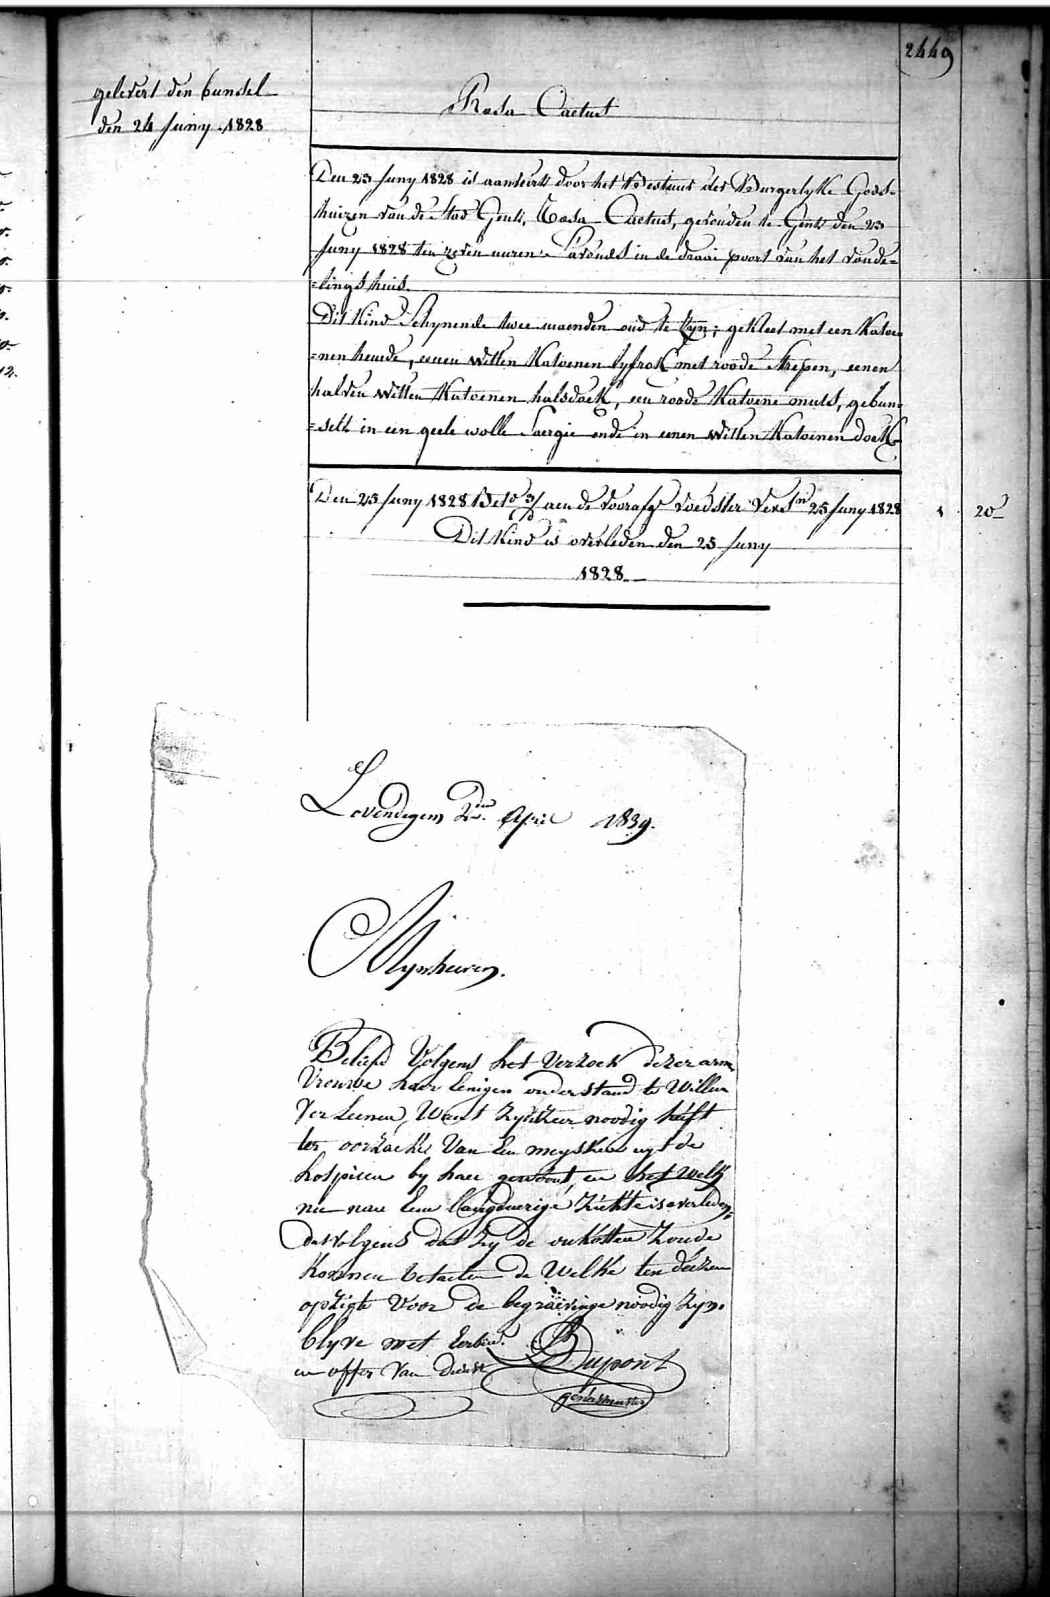 2449
gelevert den bundel
den 24 Juny 1828
Rosa Cactus
Den 23 Juny 1828 is aanveirt door het Bestuur der Burgerlyke Gods=
=huizen van de Stad Gent, Rosa Cactus, gevonden te Gent den 23
Juny 1828 ten zeven uuren 's avonds in de draai poort van het vonde=
=lings huis.
Dit Kind Schynende twee maenden oud te Zyn; gekleet met een Katoe=
=nen hemde, eenen witten Katoenen lyfrok met roode strepen, eenen
halven witten Katoenen halsdoek, een roode Katoene muts, gebun=
=selt in een geele wolle Saergie ende in eenen witten Katoenen doek
Den 23 Juny 1828 aen de voedster 25 Juny 1828
1 20
Dit Kind is overleden den 25 Juny
1828
Lovendegem 2den April 1839.
Mynheeren.
Beliefd Volgens het Verzoek dezer arm
Vrouwe haer Eenigen onderstand te Willen
Verleenen, Want Zy Zeer noodig heeft
ter oorzaeke Van Een meysken uyt de
hospicen by haer gewoont, en het Welk
nu naer Eene Langduerige Ziekte is overleden
Dat Zy de onkosten Zoude
Konnen betaelen de Welke ten deezen
opzigte Voor de begraevinge noodig Zyn.
blyve met Eerbied.
en offer Van Dienst
Dupont